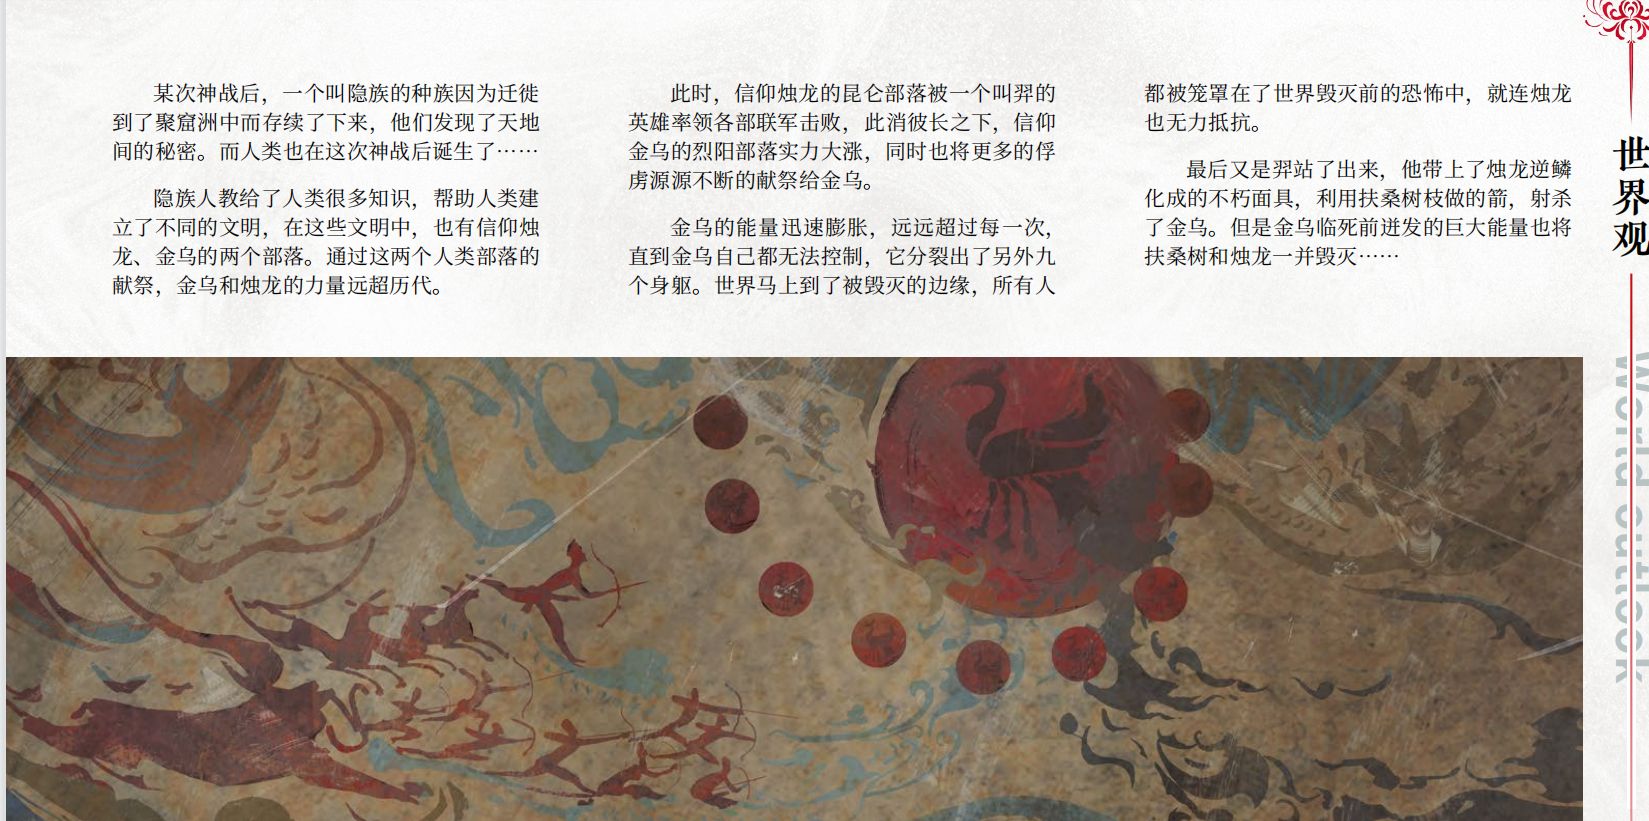 某次神战后，一个叫隐族的种族因为迁徙
到了聚窟洲中而存续了下来，他们发现了天地
间的秘密。而人类也在这次神战后诞生了……
隐族人教给了人类很多知识，帮助人类建
立了不同的文明，在这些文明中，也有信仰烛
龙、金乌的两个部落。通过这两个人类部落的
献祭，金乌和烛龙的力量远超历代。
此时，信仰烛龙的昆仑部落被一个叫羿的
英雄率领各部联军击败，此消彼长之下，信仰
金乌的烈阳部落实力大涨，同时也将更多的俘
虏源源不断的献祭给金乌。
金乌的能量迅速膨胀，远远超过每一次，
直到金乌自己都无法控制，它分裂出了另外九
个身躯。世界马上到了被毁灭的边缘，所有人
都被笼罩在了世界毁灭前的恐怖中，就连烛龙
也无力抵抗。
最后又是羿站了出来，他带上了烛龙逆鳞
化成的不朽面具，利用扶桑树枝做的箭，射杀
了金乌。但是金乌临死前迸发的巨大能量也将
扶桑树和烛龙一并毁灭……
世界观
World Outlook